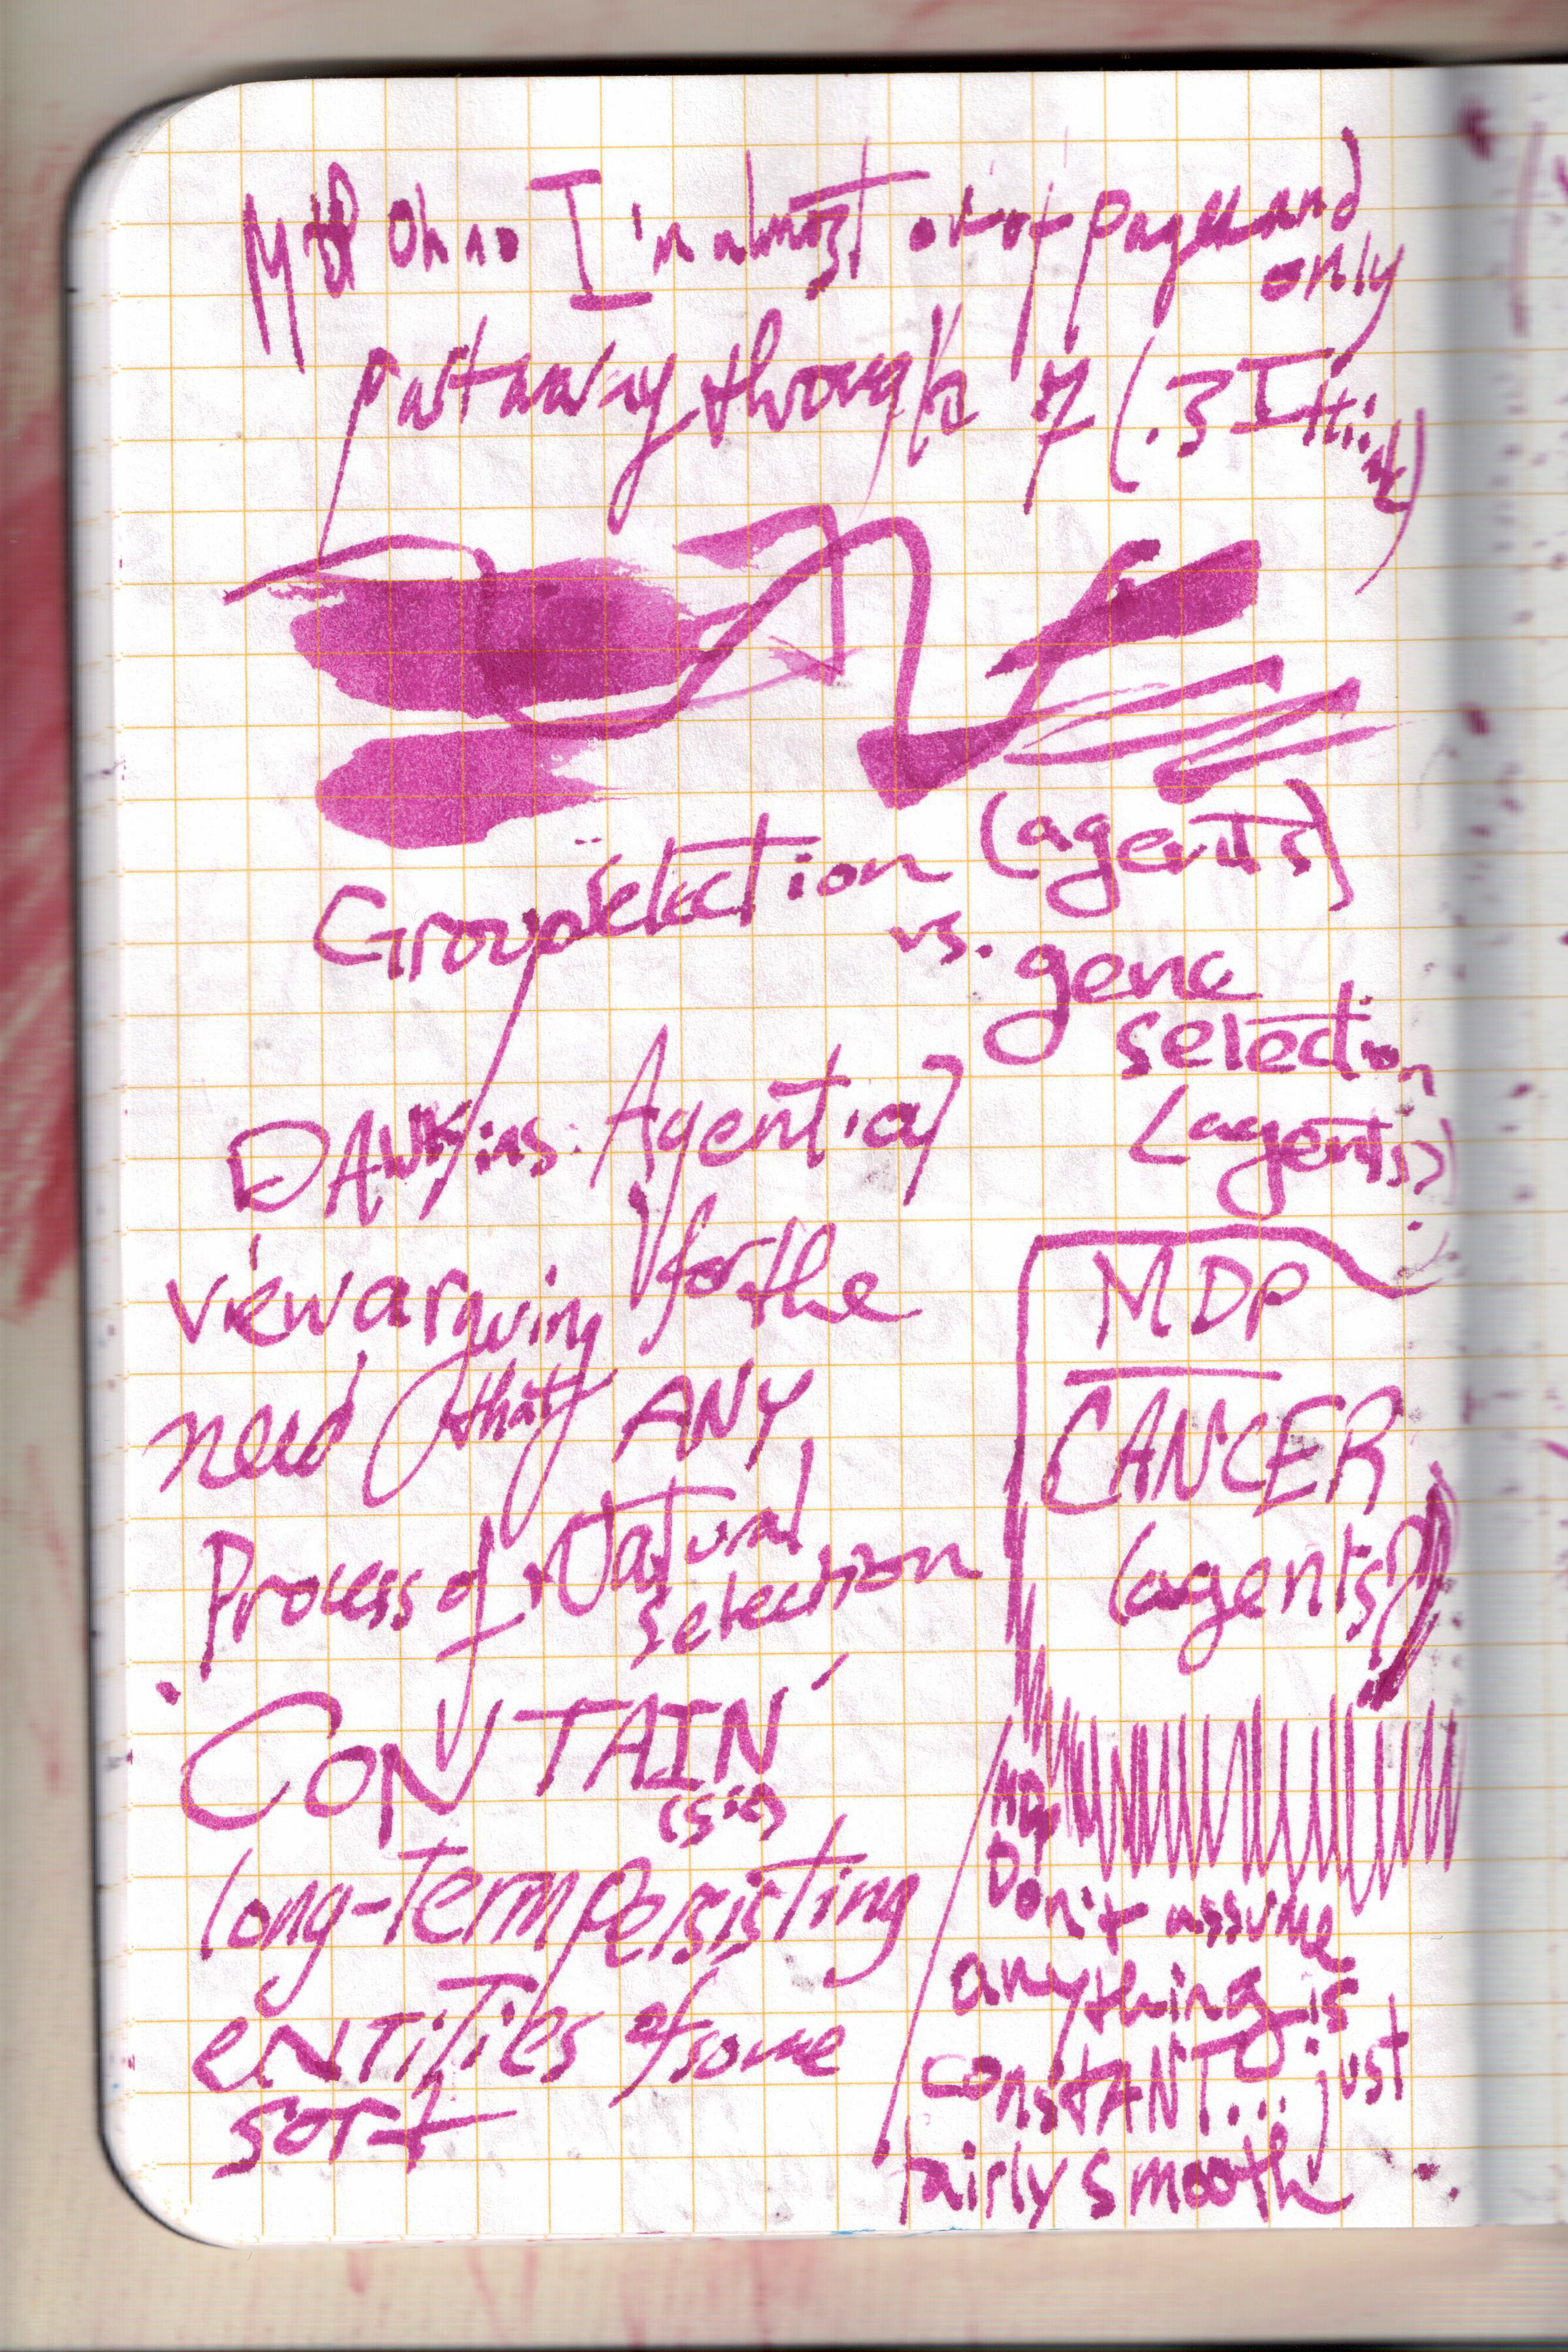 Oh no I'm almost out of pages and
only
partway through 7 (.3 I think)
Group selection (agents)
vs.
gene
selection
(agents)
DAWKins. Agential
view arguing for the
need (that) ANY
Process of Natural
selection
'CONTAIN'
long-term persisting
entities of some
sort
MDP
CANCER
(agents?)
Don't assume
anything is
constANT... just
fairly smooth